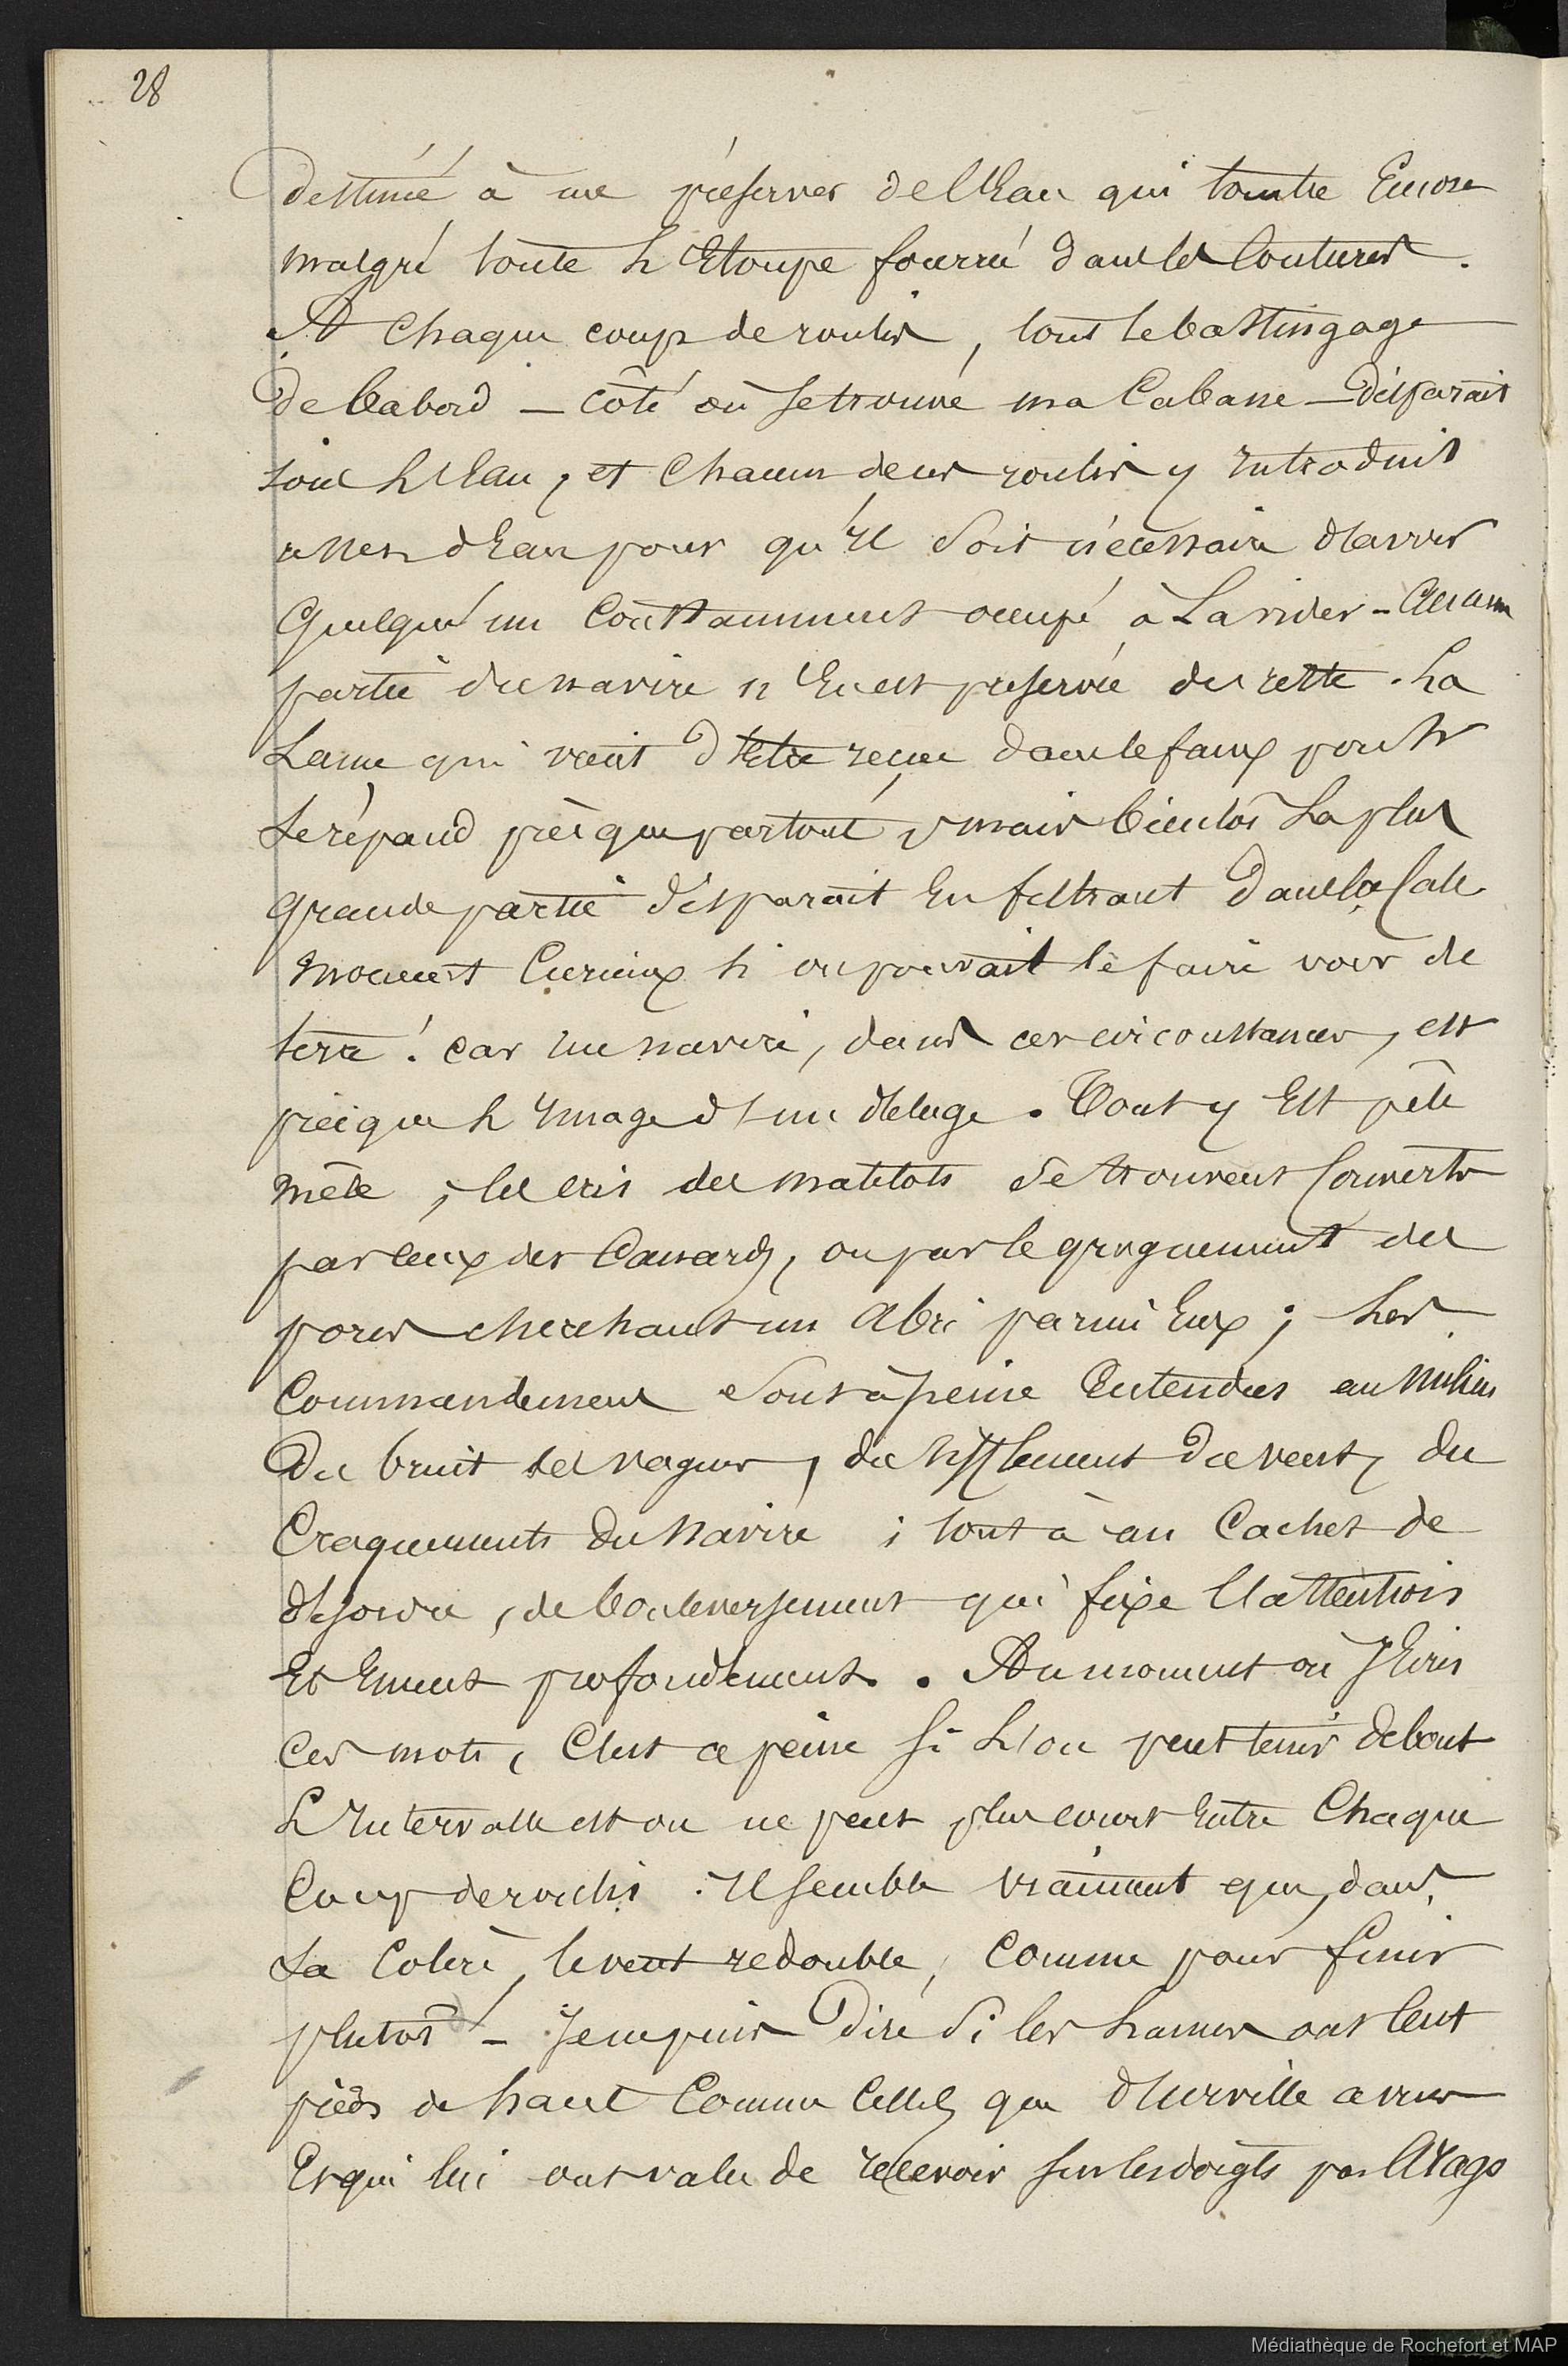 28
destiné à me préserver de l'Eau qui tombe Encore
malgré toute L'Etoupe fourré dans les Coutures.
A Chaque coup de roulis, tout le bastingage
De babord — côté où se trouve ma Cabane — Disparait
sous L'Eau, et Chacun de ces roulis y introduit
assez d'Eau pour qu'Il soit nécessaire d'avoir
Quelqu'un Constamment occupé à La vider - Aucune
partie du navire n'En est preservée du reste. La
Lame qui vient d'Etre reçue dans le faux pont
se répand prèsque partout, mais bientôt La plus
grande partie disparait En filtrant dans la Cale
Moment Curieux si on pouvait le faire voir de
terre! car un navire, dans ces circonstances, est
prèsque L'Image d'un déluge. Tout y Est pêle
mêle, les cris des matelots se trouvent Couverts
par ceux des Canards, ou par le grognement des
porcs cherchant un Abri parmi Eux; Les
Commandemens sont à peine Entendus au milieu
Du bruit des vagues, du sifflement Du vent, du
Craquements Du Navire; tout a un Cachet de
désordre, de bouleversement qui fixe l'attention
Et Emeut profondement. Au moment où J'Ecris
Ces mots, C'est a peine si L'on peut tenir debout
L'Intervalle est on ne peut plus court Entre Chaque
Coup de roulis. Il semble vraiment que, dans
sa Colère, le vent redouble, Comme pour finir
plutot - Je ne puis Dire si les Lames ont cent
pieds de haut Comme Celles que d'Urville a vues
Et qui lui ont valu de recevoir sur les doigts par Arago
Médiathèque de Rochefort et MAP